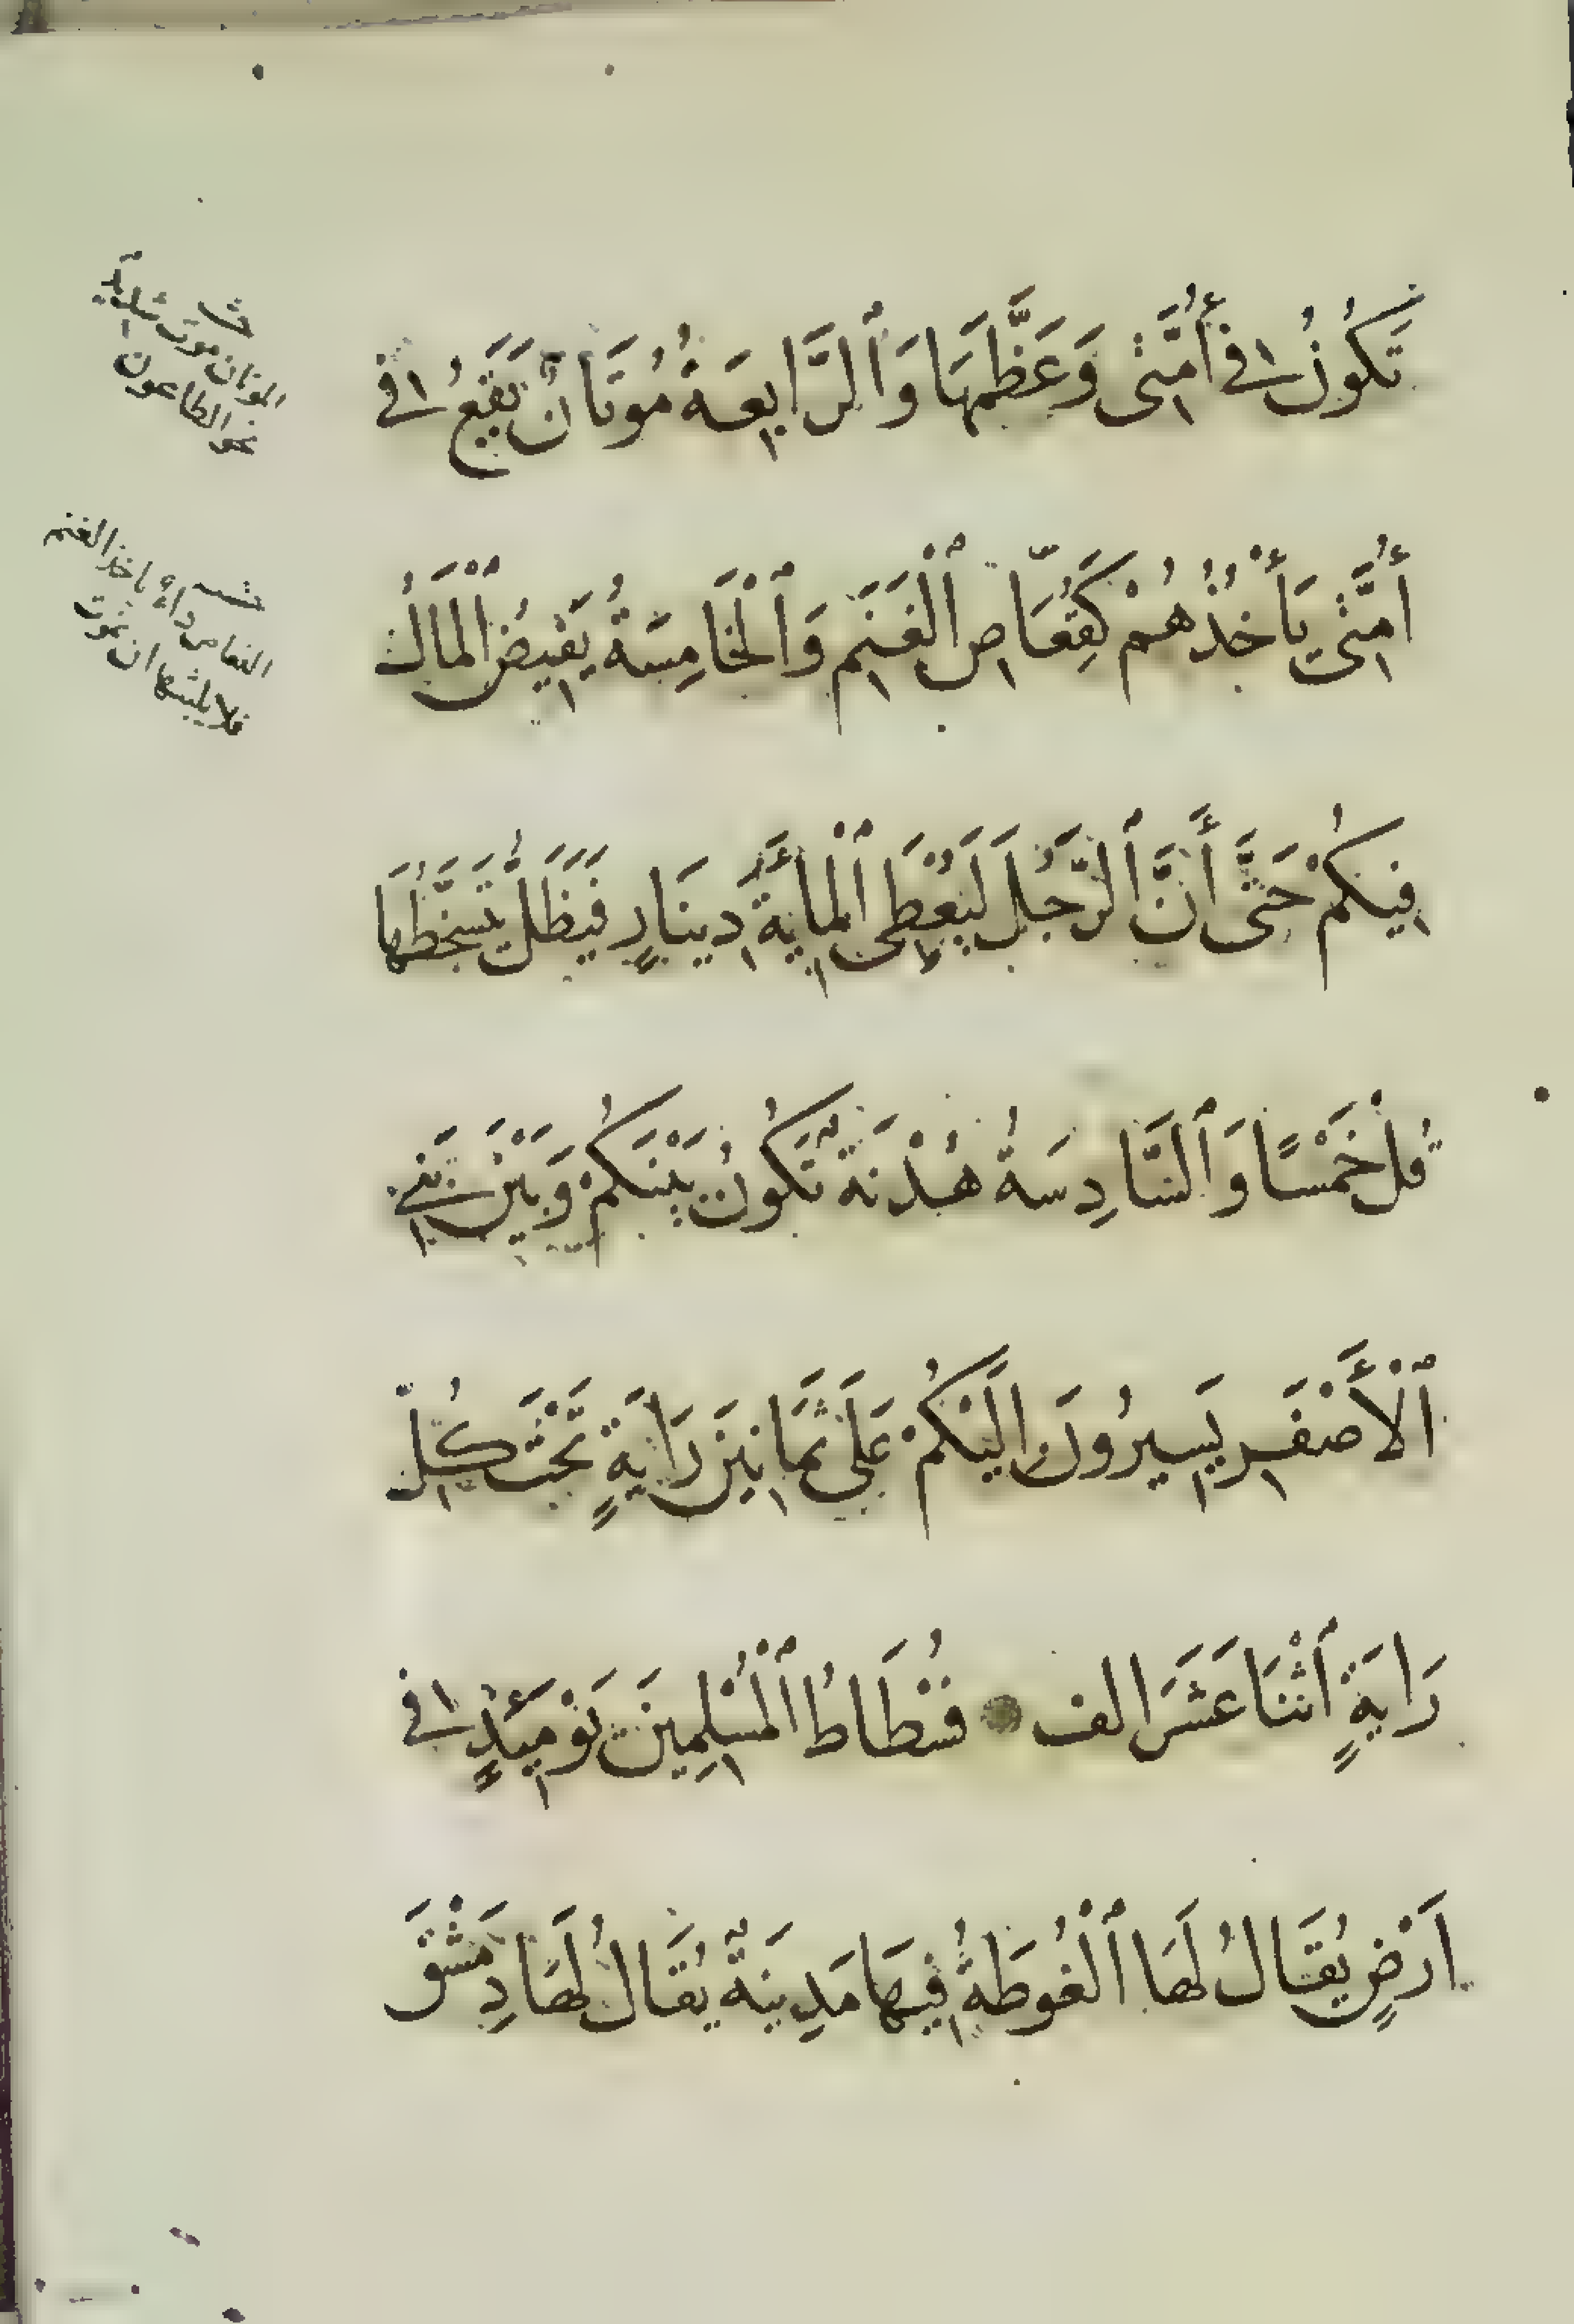 تَكُونُ فِي أُمَّتِي وَعَظَّمَهَا وَٱلرَّابِعَةُ مُوتَانٌ يَقَعُ فِي
أُمَّتِي يَأْخُذُهُمْ كَقِعَاصِ ٱلْغَنَمِ وَٱلْخَامِسَةُ يَفِيضُ ٱلْمَالُ
فِيكُمْ حَتَّى أَنَّ ٱلرَّجُلَ لَيُعْطَى ٱلْمِايَةَ دِينَارٍ فَيَظَلُّ يَتَسَخَّطُهَا
قُلْ خَمْسًا وَٱلسَّادِسَةُ هُدْنَةٌ تَكُونُ بَيْنَكُمْ وَبَيْنَ بَنِي
ٱلْأَصْفَرِ يَسِيرُونَ إِلَيْكُمْ عَلَى ثَمَانِينَ رَايَةٍ تَحْتَ كُلِّ
رَايَةٍ ٱثْنَا عَشَرَ الف فُسْطَاطُ ٱلْمُسْلِمِينَ يَوْمَئِذٍ فِي
اَرْضٍ يُقَالُ لَهَا ٱلْغُوطَةُ فِيهَا مَدِينَةٌ يُقَالُ لَهَا دِمَشْقَ
الموتان موت شديد
نحو الطاعون
القعاص داء ياخذ الغنم
فلا يلبثها ان تموت